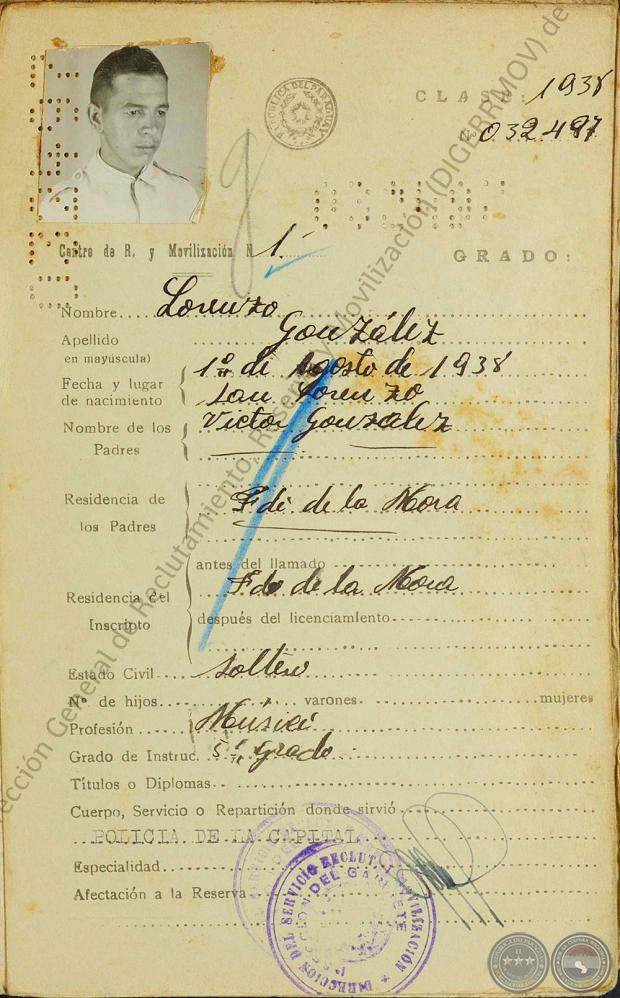 REPUBLICA DEL PARAGUAY
CLASE: 1938
Nº 032.497
Centro de R. y Movilización N 1.
GRADO:
Nombre.... Lorenzo
Apellido González
en mayúscula)
Fecha y lugar 1º de Agosto de 1938
de nacimiento San Lorenzo
Nombre de los Victor González
Padres
Residencia de Fdo de la Mora
los Padres
antes del llamado
Fdo de la Mora
Residencia del
Inscripto
después del licenciamiento
Estado Civil soltero
Nº de hijos varones mujeres
Profesión Músico
Grado de Instruc. 5º grado
Títulos o Diplomas
Cuerpo, Servicio o Repartición donde sirvió
POLICIA DE LA CAPITAL
Especialidad
Afectación a la Reserva
DIRECCION DEL SERVICIO RECLUT. MOVILIZACIÓN
ección General de Reclutamiento, Reserva y Movilización (DIGERRMOV) de